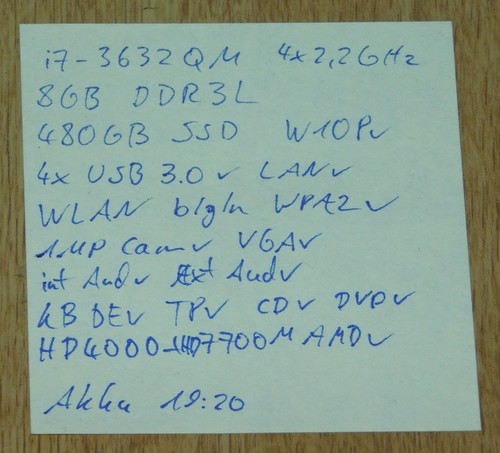 i7-3632QM 4x2,2GHz
8GB DDR3L
480GB SSD W10P✓
4x USB 3.0✓ LAN✓
WLAN b/g/n WPA2✓
1MP Cam✓ VGA✓
int Aud✓ Ext Aud✓
KB DE✓ TP✓ CD✓ DVD✓
HD4000-HD7700M AMD✓
Akku 19:20